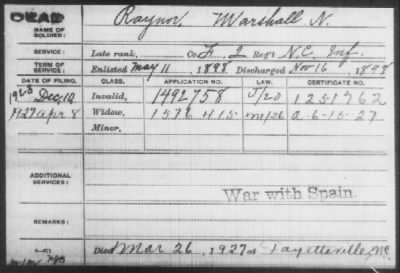 DEAD
NAME OF SOLDIER:
Raynor, Marshall N.
SERVICE:
Late rank, Co. F, 2 Reg't N.C. Inf.
TERM OF SERVICE:
Enlisted May 11, 1898, Discharged Nov 16, 1898
DATE OF FILING. CLASS. APPLICATION NO. LAW. CERTIFICATE NO.
1920 Dec 10 Invalid, 1492758 J/20 1231962
1927 Apr 8 Widow, 1576415 a-6-15-27
Minor,
ADDITIONAL SERVICES:
War with Spain.
REMARKS:
Died Mar 26, 1927, at Fayetteville, NC